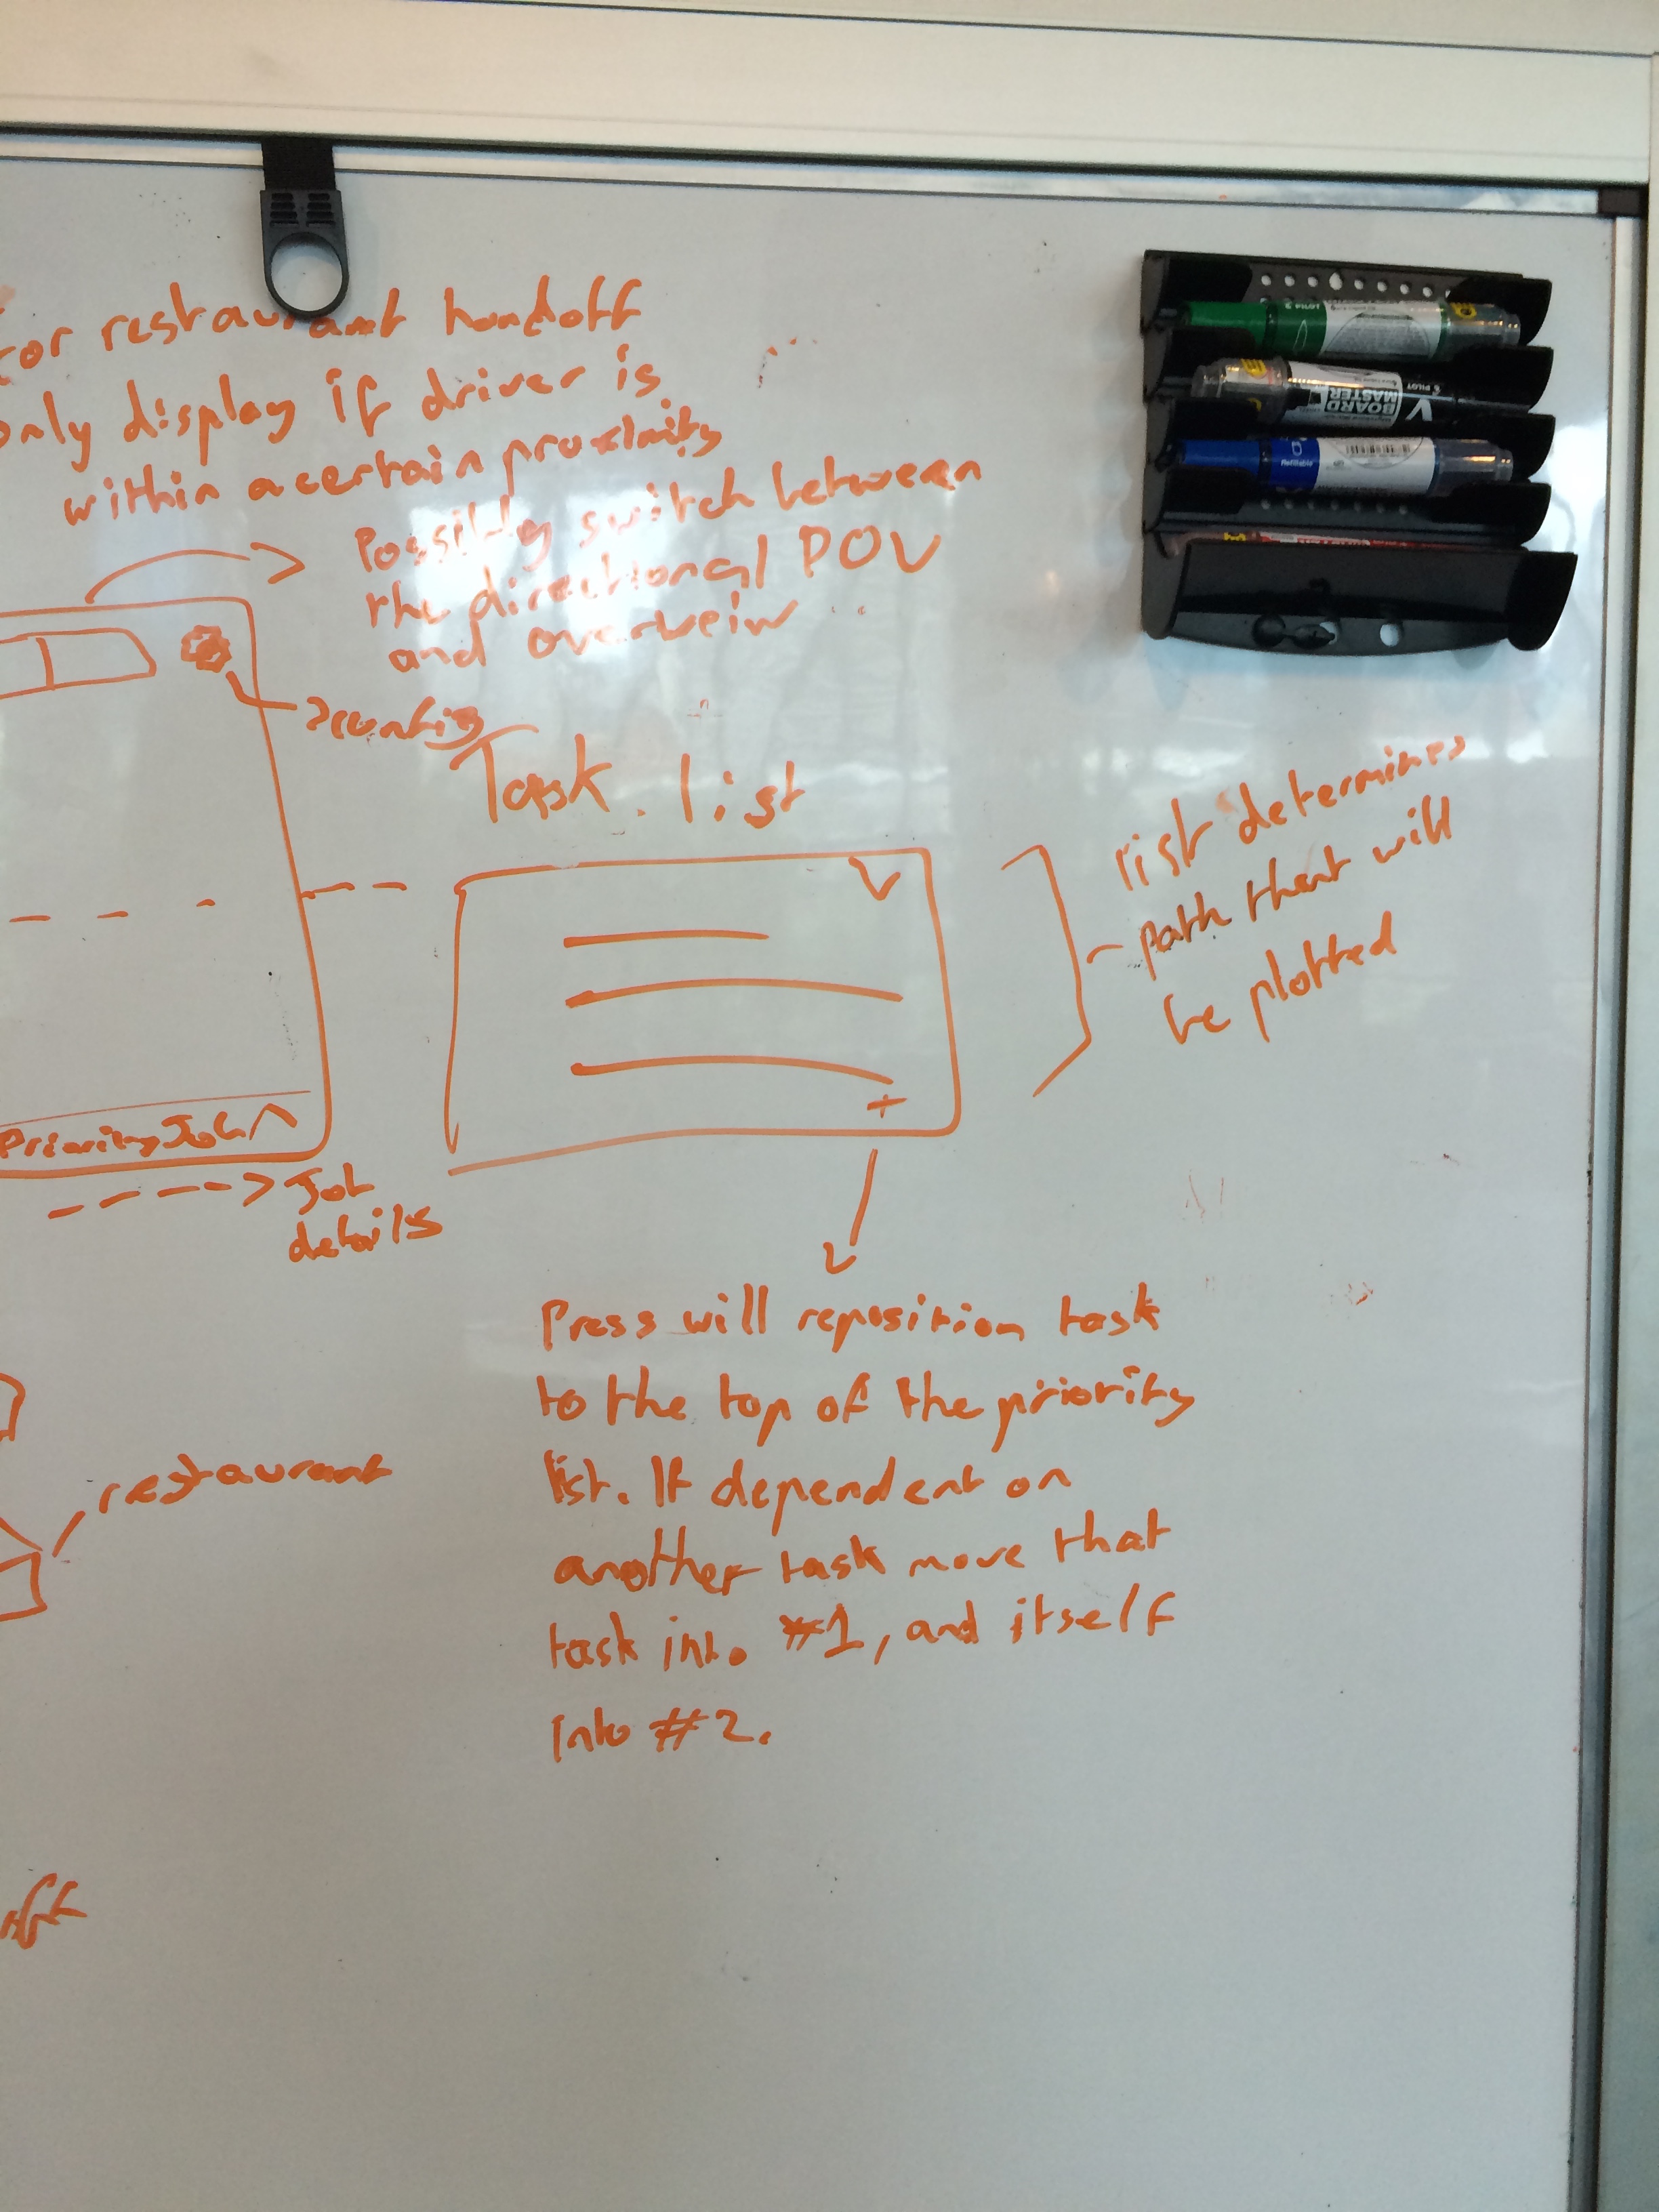 For restaurant handoff
only display if driver is
within a certain proximity
Possibly switch between
the directional POV
and overveiw
config
Task list
list determines
path that will
be plotted
Priority Job
Job
details
Press will reposition task
to the top of the priority
list. If dependent on
another task move that
task into #1, and itself
into #2.
restaurant
BOARD
MASTER
PILOT
Refillable